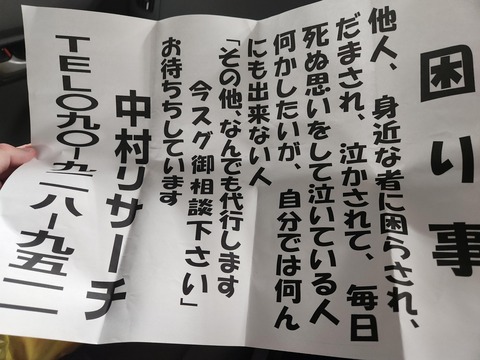 困り事
他人、身近な者に困らされ、
だまされ、泣かされて、毎日
死ぬ思いをして泣いている人
何かしたいが、自分では何ん
にも出来ない人
「その他、なんでも代行します
今スグ御相談下さい」
お待ちちしています
中村リサーチ
TEL〇九〇ー九二一八ー九五二一